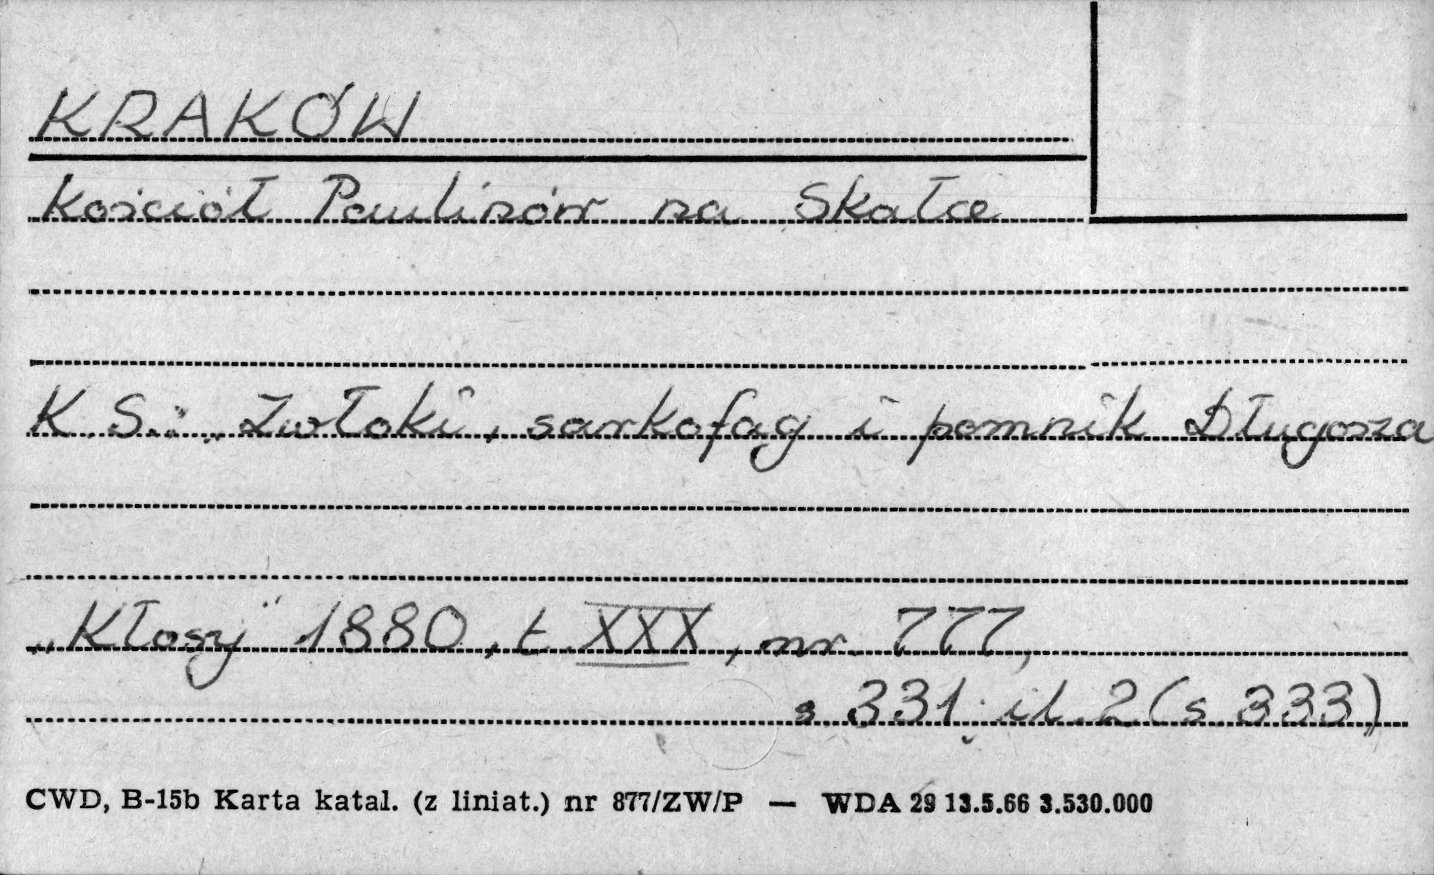 KRAKÓW
Kościół Paulinów na Skałce
K. S.: Zwłoki, sarkofag i pomnik Długosza
„Kłosy" 1880, t. XXX, nr. 777,
s. 331; il. 2 (s. 333)
CWD, B-15b Karta katal. (z liniat.) nr 877/ZW/P — WDA 29 13.5.66 3.530.000